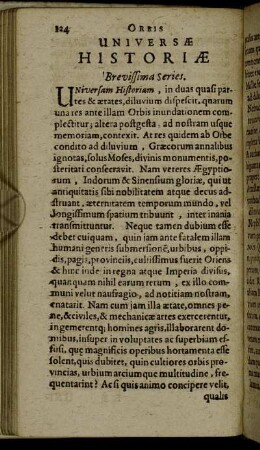 124 ORBIS
UNIVERSÆ
HISTORIÆ
Brevissima Series.
UNiversam Historiam, in duas quasi par-
tes & ætates, diluvium dispescit, quarum
una res ante illam Orbis inundationem com-
plectitur; altera postgesta, ad nostram usque
memoriam, contexit. At res quidem ab Orbe
condito ad diluvium, Græcorum annalibus
ignotas, solus Moses, divinis monumentis, po-
steritati consecravit. Nam veteres Ægyptio-
rum, Indorum & Sinensium gloriæ, qui ut
antiquitatis sibi nobilitatem atque decus ad-
struant, æternitatem temporum mundo, vel
longissimum spatium tribuunt, inter inania
transmittuntur. Neque tamen dubium esse
debet cuiquam, quin jam ante fatalem illam
humani generis submersionē, urbibus, oppi-
dis, pagis, provinciis, cultissimus fuerit Oriens
& hinc inde in regna atque Imperia divisus,
quanquam nihil earum rerum, ex illo com-
muni velut naufragio, ad notitiam nostram,
enatarit. Nam cum jam illa ætate, omnes pe-
ne, & civiles, & mechanicæ artes exercerentur,
ingemerentq; homines agris, illaborarent do-
mibus, insuper in voluptates ac superbiam es-
fusi, quæ magnificis operibus hortamenta esse
solent, quis dubitet, quin cultiores orbis pro-
vincias, urbium arciumque multitudine, fre-
quentarint? Ac si quis animo concipere velit,
qualis